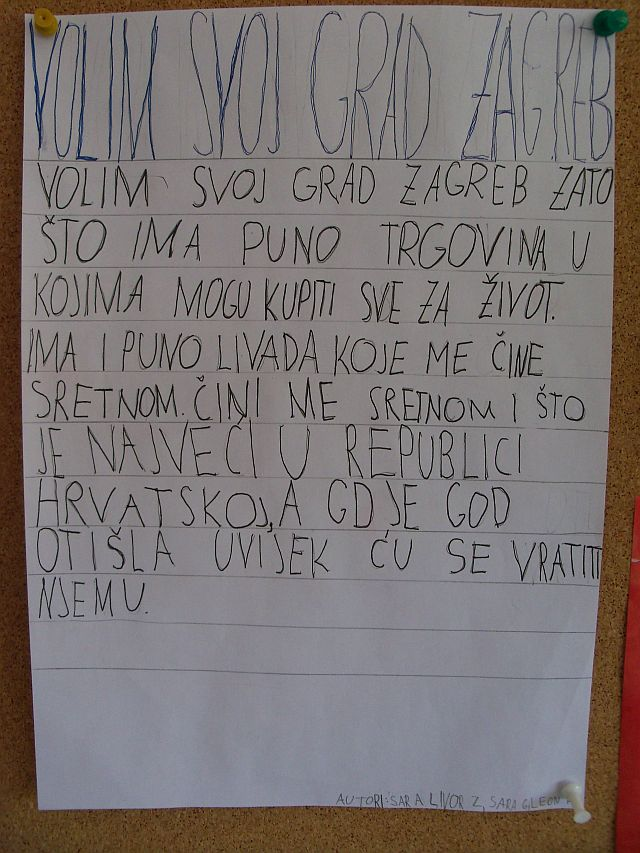 VOLIM SVOJ GRAD ZAGREB
VOLIM SVOJ GRAD ZAGREB ZATO
ŠTO IMA PUNO TRGOVINA U
KOJIMA MOGU KUPITI SVE ZA ŽIVOT.
IMA I PUNO LIVADA KOJE ME ČINE
SRETNOM. ČINI ME SRETNOM I ŠTO
JE NAJVEĆI U REPUBLICI
HRVATSKOJ, A GDJE GOD
OTIŠLA UVIJEK ĆU SE VRATITI
NJEMU.
AUTORI: SARA LIVOR Z, SARA G, LEON